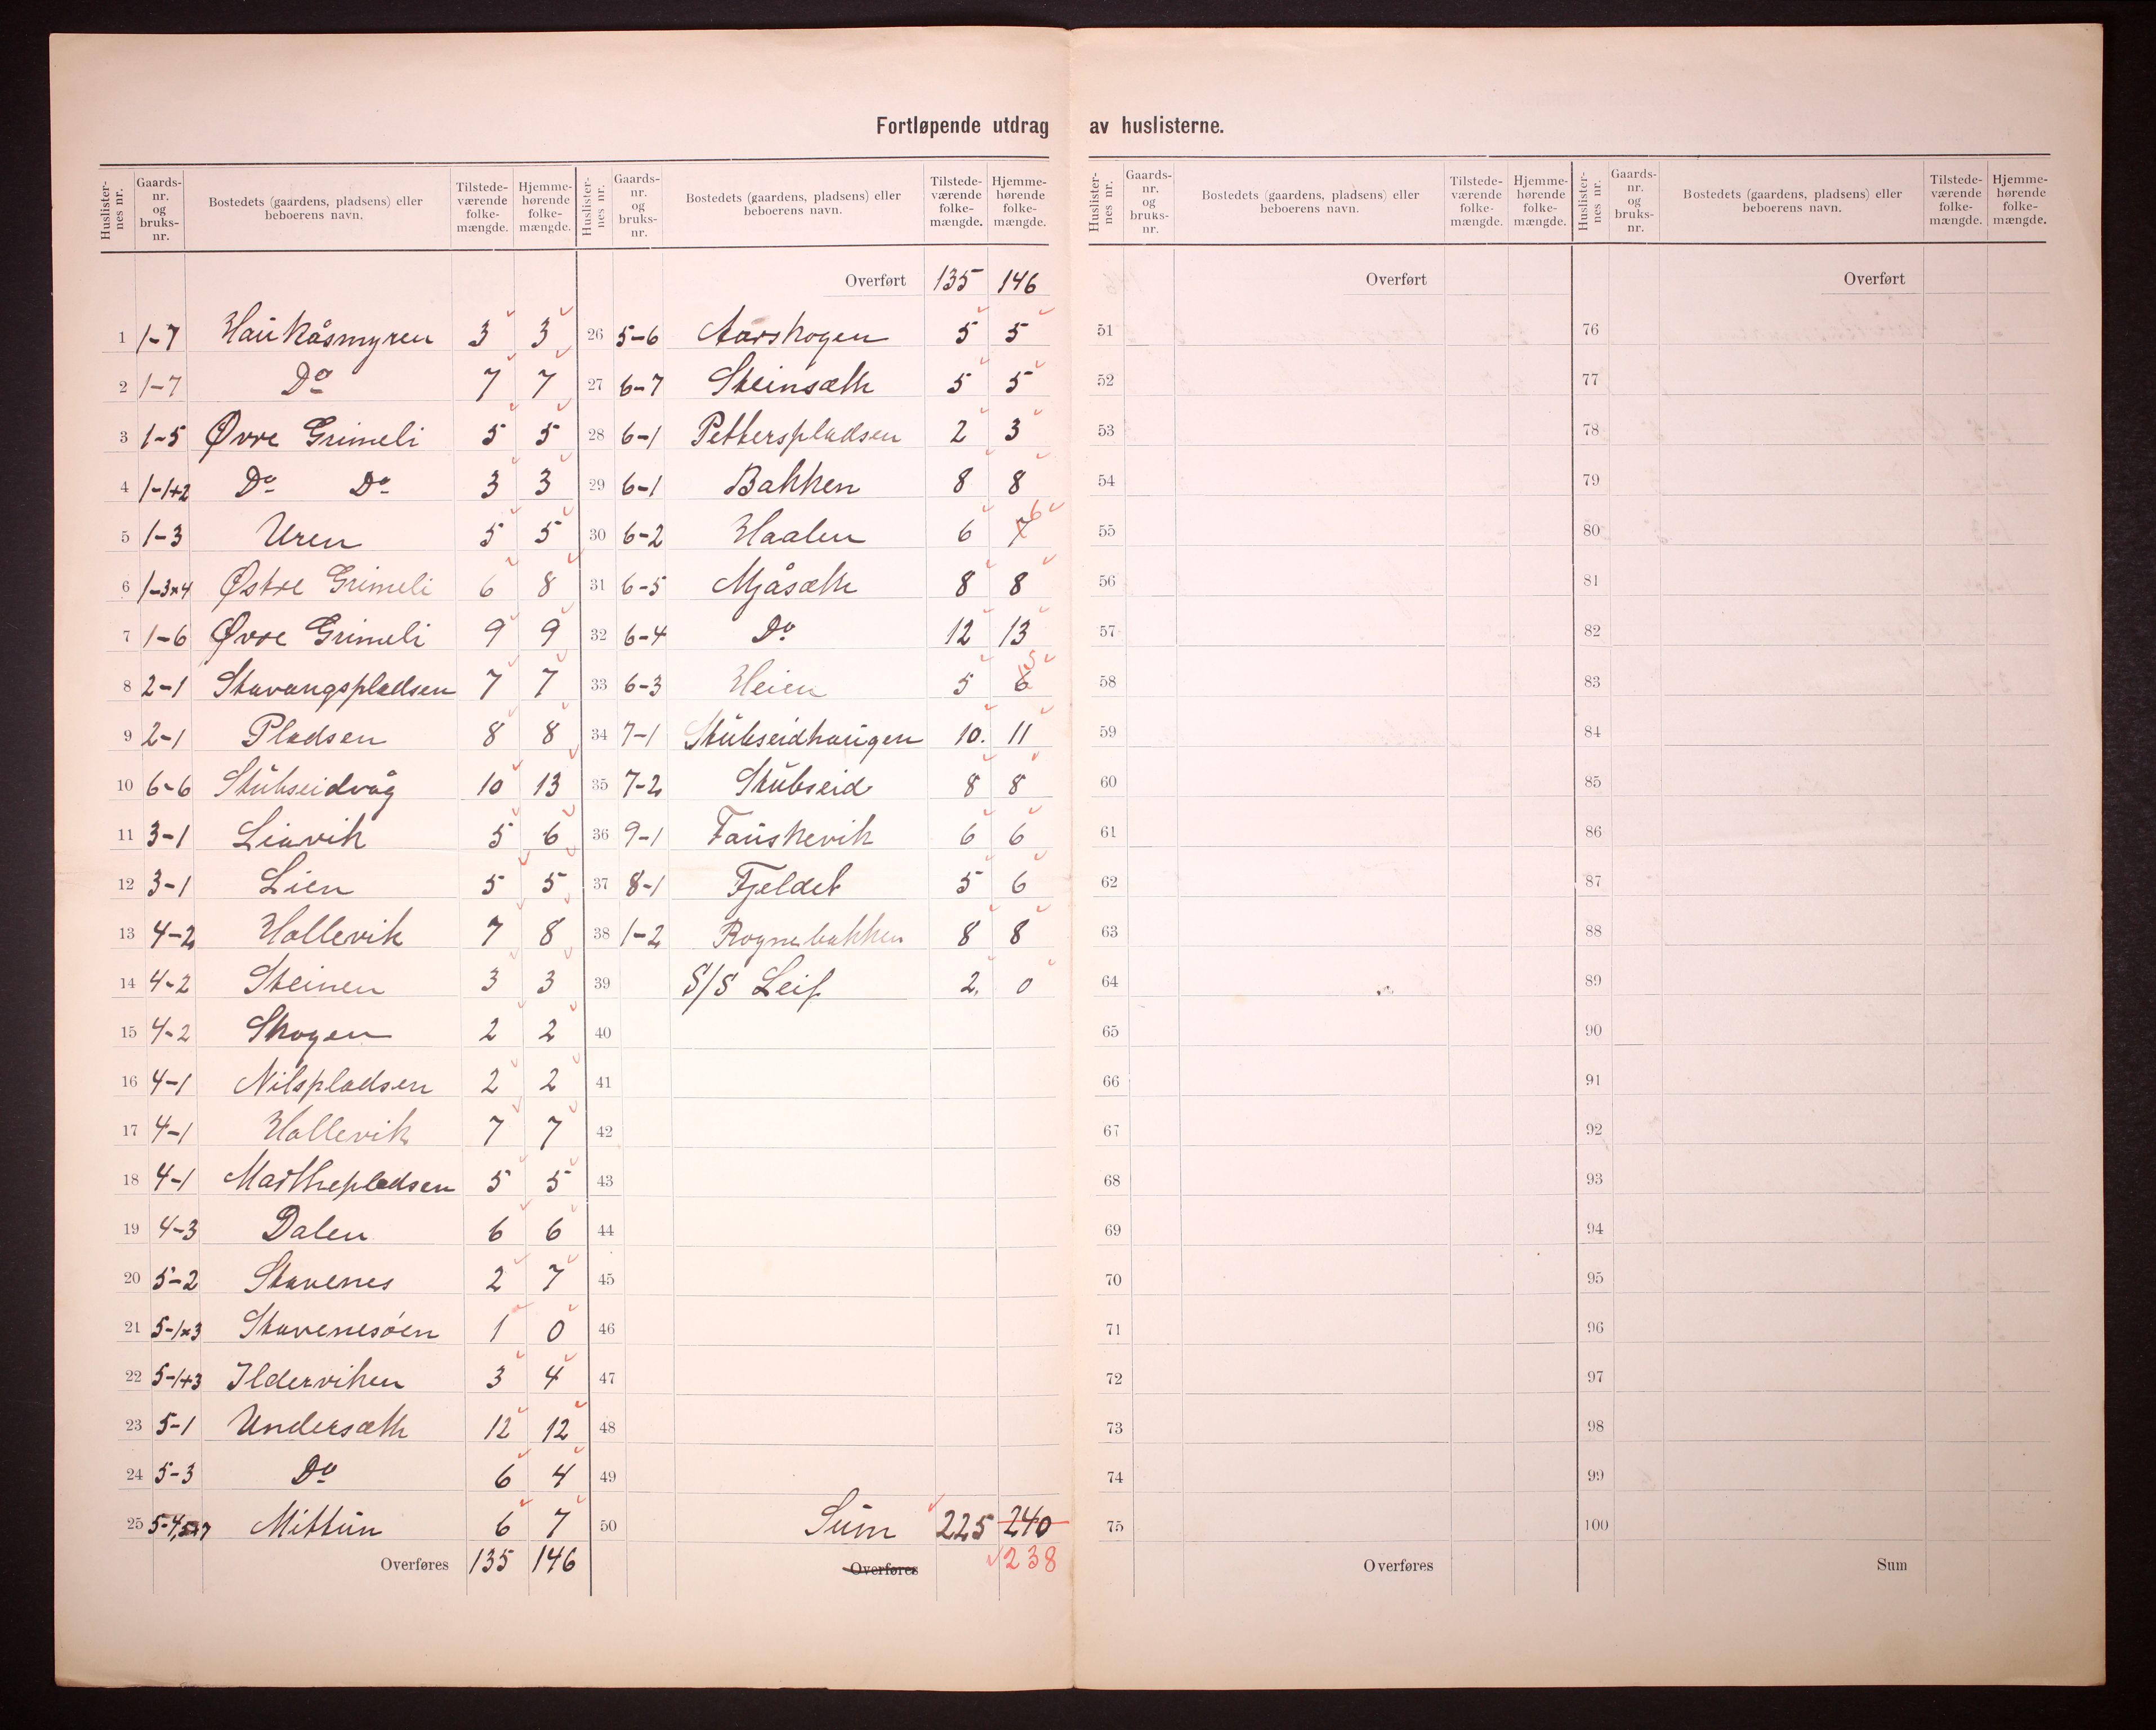 Fortløpende utdrag av huslisterne.
Huslister-nes nr. | Gaards-nr. og bruks-nr. | Bostedets (gaardens, pladsens) eller beboerens navn. | Tilstede-værende folke-mængde. | Hjemme-hørende folke-mængde.
1 1-7 Haukåsmyren 3 3
2 1-7 Do 7 7
3 1-5 Øvre Grimeli 5 5
4 1-1+2 Do Do 3 3
5 1-3 Uren 5 5
6 1-3x4 Østre Grimeli 6 8
7 1-6 Øvre Grimeli 9 9
8 2-1 Stavangspladsen 7 7
9 2-1 Pladsen 8 8
10 6-6 Stubseidvåg 10 13
11 3-1 Liavik 5 6
12 3-1 Lien 5 5
13 4-2 Hollevik 7 8
14 4-2 Steinen 3 3
15 4-2 Skogen 2 2
16 4-1 Nilspladsen 2 2
17 4-1 Hollevik 7 7
18 4-1 Marthepladsen 5 5
19 4-3 Dalen 6 6
20 5-2 Stavenes 2 7
21 5-1x3 Stavenesøen 1 0
22 5-1+3 Ilderviken 3 4
23 5-1 Undersæth 12 12
24 5-3 Do 6 4
25 5-4, Mittun 6 7
Overføres 135 146
Huslister-nes nr. | Gaards-nr. og bruks-nr. | Bostedets (gaardens, pladsens) eller beboerens navn. | Tilstede-værende folke-mængde. | Hjemme-hørende folke-mængde.
Overført 135 146
26 5-6 Aarskogen 5 5
27 6-7 Steinsæth 5 5
28 6-1 Petterspladsen 2 3
29 6-1 Bakken 8 8
30 6-2 Haalen 6 7 6
31 6-5 Mjåsæth 8 8
32 6-4 Do 12 13
33 6-3 Heien 5 6 5
34 7-1 Stubseidhaugen 10. 11
35 7-2 Stubseid 8 8
36 9-1 Fauskevik 6 6
37 8-1 Fjeldet 5 6
38 1-2 Rognebakken 8 8
39 S/S Leif 2. 0
40
41
42
43
44
45
46
47
48
49
50 Sum 225 240
Overføres 238
Huslister-nes nr. | Gaards-nr. og bruks-nr. | Bostedets (gaardens, pladsens) eller beboerens navn. | Tilstede-værende folke-mængde. | Hjemme-hørende folke-mængde.
Overført
51
52
53
54
55
56
57
58
59
60
61
62
63
64
65
66
67
68
69
70
71
72
73
74
75
Overføres
Huslister-nes nr. | Gaards-nr. og bruks-nr. | Bostedets (gaardens, pladsens) eller beboerens navn. | Tilstede-værende folke-mængde. | Hjemme-hørende folke-mængde.
Overført
76
77
78
79
80
81
82
83
84
85
86
87
88
89
90
91
92
93
94
95
96
97
98
99
100
Sum